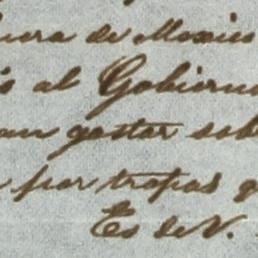 uera de Mexico
al Gobierno
an gastar sob
por tropas q
Es de V.